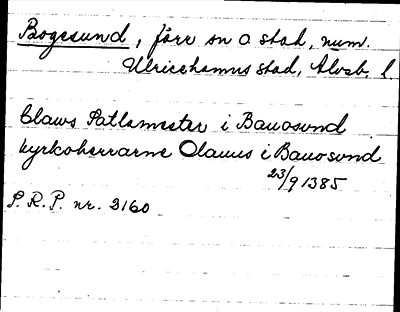 Bogesund, förr sn o stad, num.
Ulricehamns stad, Älvsb. l.
Claws Patlamester i Bauosund
kyrkoherrarne Olauus i Bauosund
23/9 1385
S. R. P. nr. 2160